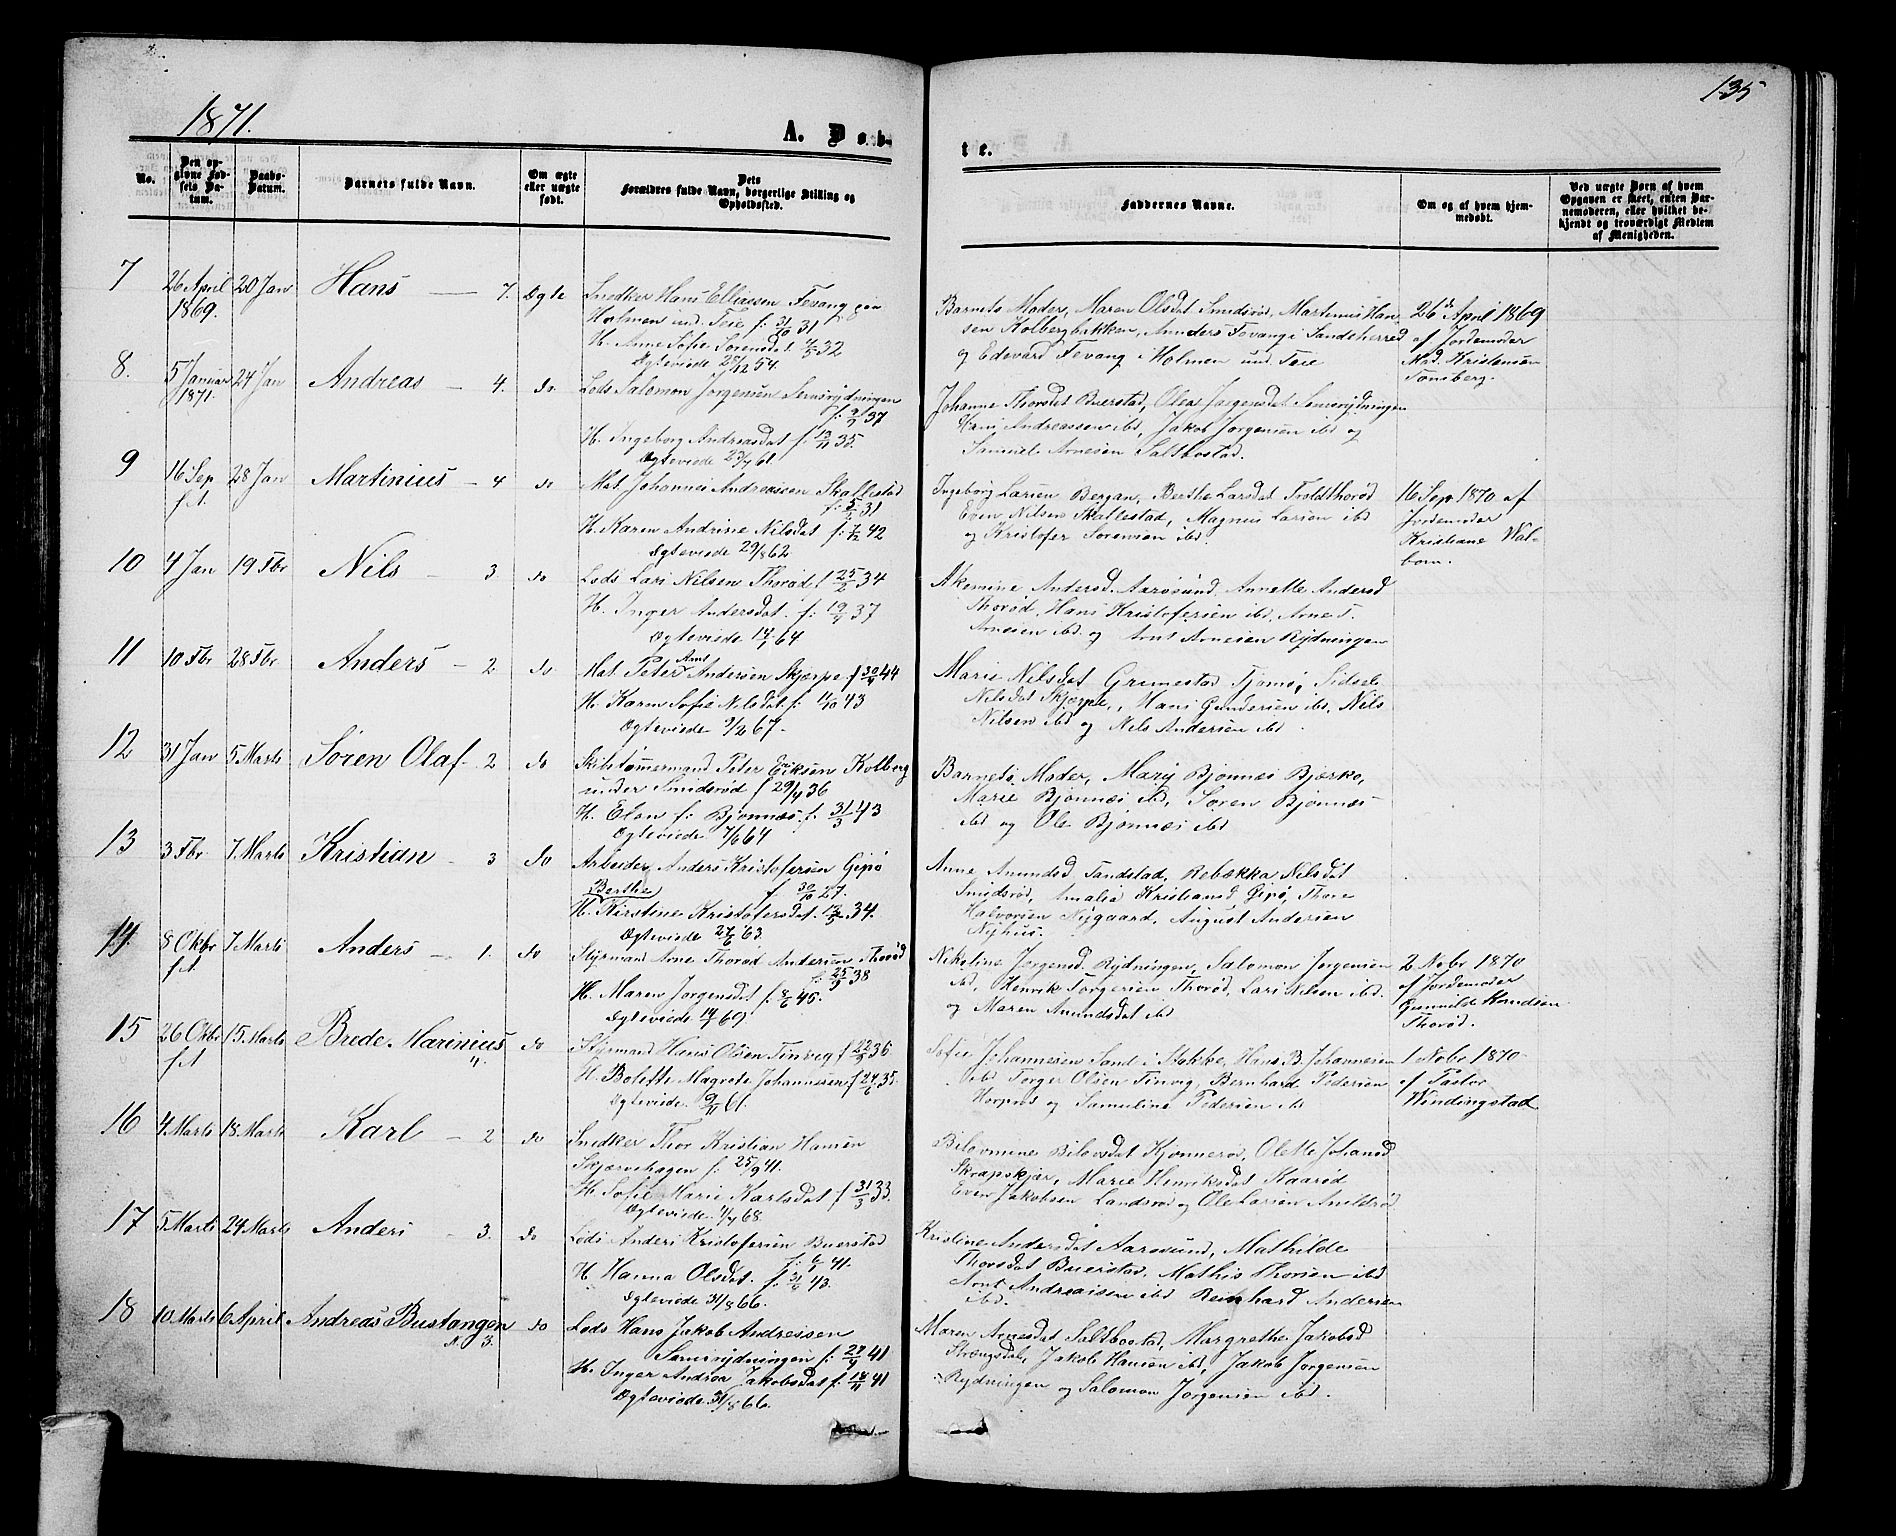 135
1871.
A. Døb-
te.
No.
Den op-
givne Fød-
sels Da-
tum.
Daabs-
Datum.
Barnets fulde Navn.
Om ægte
eller uægte
født.
Dets
Forældres fulde Navn, borgerlige Stilling og
Opholdssted.
Faddernes Navne.
Om og af hvem hjem-
medøbt.
Ved uægte Børn af hvem
Opgaven er skeet, enten Bar-
nemoderen, eller hvilket be-
kjendt og troværdigt Medlem
af Menigheden.
7 26 April 1869. 20 Jan Hans — 7. Ægte
Snedker Hans Elliassen Fevang paa
Holmen und. Teie f. 31/10 31
H. Anne Sofie Sørensdat 32
Ægteviede 28/12 54.
Barnets Moder, Maren Olsdat Smidsrød, Martinius Han-
sen Kolbergbakken, Anders Fevang i Sandeherred
og Edevard Fevang i Holmen und Teie
26de April 1869
af Jordemoder
Mad. Kristensen
Tønsberg.
8. 5 Januar 1871. 24 Jan Andreas — 4. do.
Lods Salomon Jørgensen Sønsrydningen
f. 37
H. Ingeborg Andreasdat f. 13/11 35.
Ægteviede 23/4 61.
Johanne Thorsdat Buerstad, Olea Jørgensdat Sønsrydningen
Hans Andreassen ibd, Jakob Jørgensen ibd og
Samuel Arnesen Saltbostad.
9 16 Sep f.A. 28 Jan Martinius — 4 do
Mat. Johannes Andreassen Skallestad
f. 5/2 31
H. Karen Andrine Nilsdat f. 7/2 42
Ægteviede 29/8 62
Ingeborg Larsen Bergan, Berthe Larsdat Troldthorød
Even Nilsen Skallestad, Magnus Larsen ibd
og Kristofer Sørensen ibd.
16 Sep. 1870 af
Jordemoder
Kristiane Wal-
born.
10 4 Jan 19 Fbr Nils — 3 do
Lods Lars Nilsen Thorød f 25/2 34
H. Inger Andersdat f. 37
Ægteviede 64
Akemine Andersd. Aarøsund, Annette Andersd
Thorød, Hans Kristofersen ibd, Arne T.
Arnesen ibd og Arnt Arnesen Rydningen
11 10 Fbr 28 Fbr Anders — 2. do
Mat. Peter Arnt Andersen Skjerpe f. 44
H. Karen Sofie Nilsdat f. 43
Ægteviede 9/2 67.
Marie Nilsdat Grimestad Tjømø, Sidsel
Nilsdat Skjerpe, Hans Gundersen ibd, Nils
Nilsen ibd og Nils Andersen ibd.
12 31 Jan 5 Marts Søren Olaf — 2 do
Skibstømermand Peter Eriksen Kolberg
under Smidsrød f 29/4 36
H. Elen f: Bjønnæs f. 31/3 43
Ægteviede 7/6 64
Barnets Moder, Mary Bjønnæs Bjerkø,
Marie Bjønnæs ibd, Søren Bjønnæs
ibd og Ole Bjønnæs ibd
13 3 Fbr 7 Marts Kristian — 3 do
Arbeider Anders Kristofersen Gipø
Berthe f. 30/10 27.
H. Kirstine Kristofersdat. 34.
Ægteviede 63.
Anne Amundsd. Sandstad, Rebekka Nilsdat
Smidsrød, Amalia Kristiansd. Gipø, Thore
Halvorsen Nygaard, August Andersen
Nyhus.
14. 8 Okbr f.A. 7 Marts Anders — 1. do
Styrmand Arne Thorød Andersen Thorød
f. 38
H. Maren Jørgensdat f. 8/6 45.
Ægteviede 69.
Nikoline Jørgensd. Rydningen, Salomon Jørgensen
ibd, Henrik Torgersen Thorød, Lars Nilsen ibd.
og Maren Amundsdat ibd
2 Nobr 1870
af Jordemoder
Gunnilde Knudsen
Thorød.
15 26 Okbr f.A. 15 Marts Brede Marinius 4. do
Styrmand Hans Olsen Tinvig f 36
H. Bolette Magrete Johannesen f 35.
Ægteviede 9/11 61.
Sofie Johannesen Sand i Stokke, Hans B. Johannesen
ibd Torger Olsen Tinvig, Bernhard Pedersen
og Samuline Pedersen ibd
1 Nobr 1870
af Pastor
Windingstad
16 4 Marts 18 Marts Karl — 2 do
Snedker Thor Kristian Hansen
Skjærvehagen f. 25/9 41.
H. Sofie Marie Karlsdat f 31/3 33.
Ægteviede 68.
Bilovmine Bilovsdat Kjønnerød, Olette Johansd
Skrapskjær, Marie Henriksdat Kaarød
Even Jakobsen Landsrød og Ole Larsen
17 5 Marts 24 Marts Anders — 3. do
Lods Anders Kristofersen Buerstad
f. 41.
H. Hanna Olsdat. f. 43.
Ægteviede 31/8 66.
Kristine Andersdat Aarøsund, Mathilde
Thorsdat Buerstad, Mathis Thorsen ibd
Arnt Andreassen ibd Reinhard Andersen
ibd.
18 10 Marts 6 April Andreas Bustangen 3. do
Lods Hans Jakob Andreasen
Sønsrydningen f. 41
H. Inger Andrea Jakobsdat f. 18/11 41
Ægteviede 31/8 66.
Maren Arnesdat Saltbostad, Margrethe Jakobsd
Strengsdal, Jakob Hansen ibd, Jakob Jørgensen
Rydningen og Salomon Jørgensen ibd.